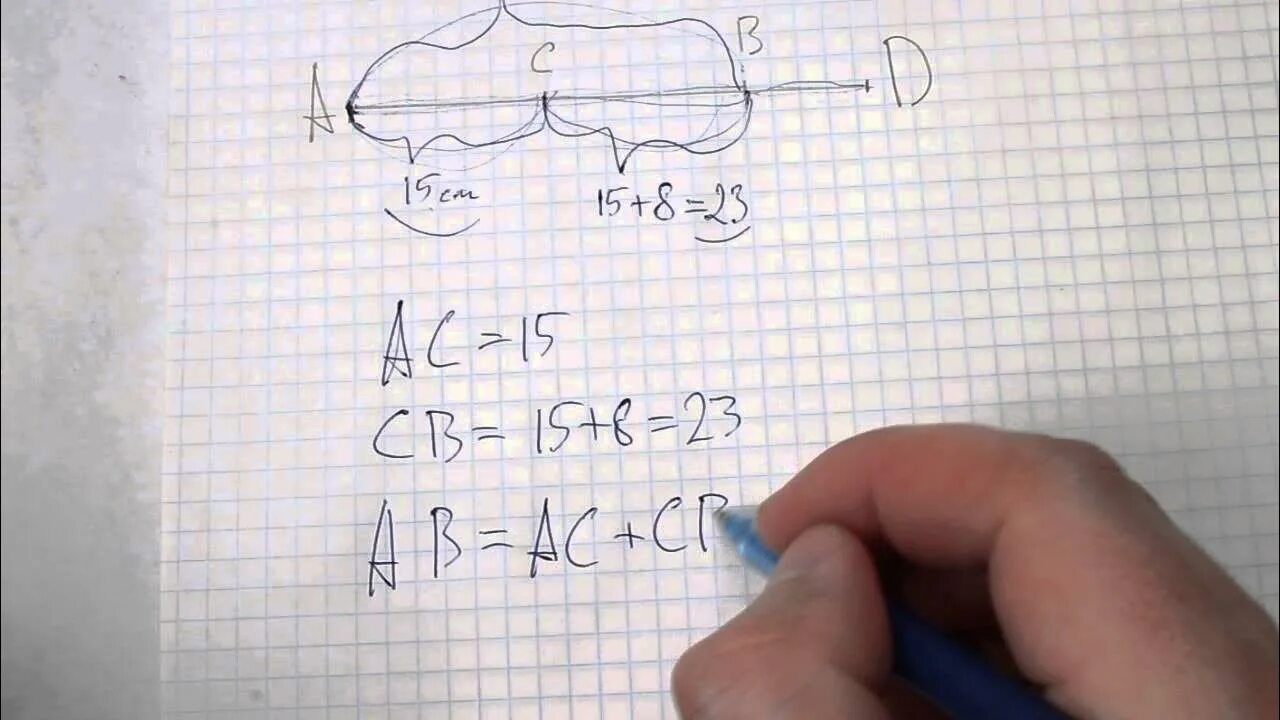 C B
A D
15 cm 15+8=23
AC=15
CB=15+8=23
AB=AC+CB